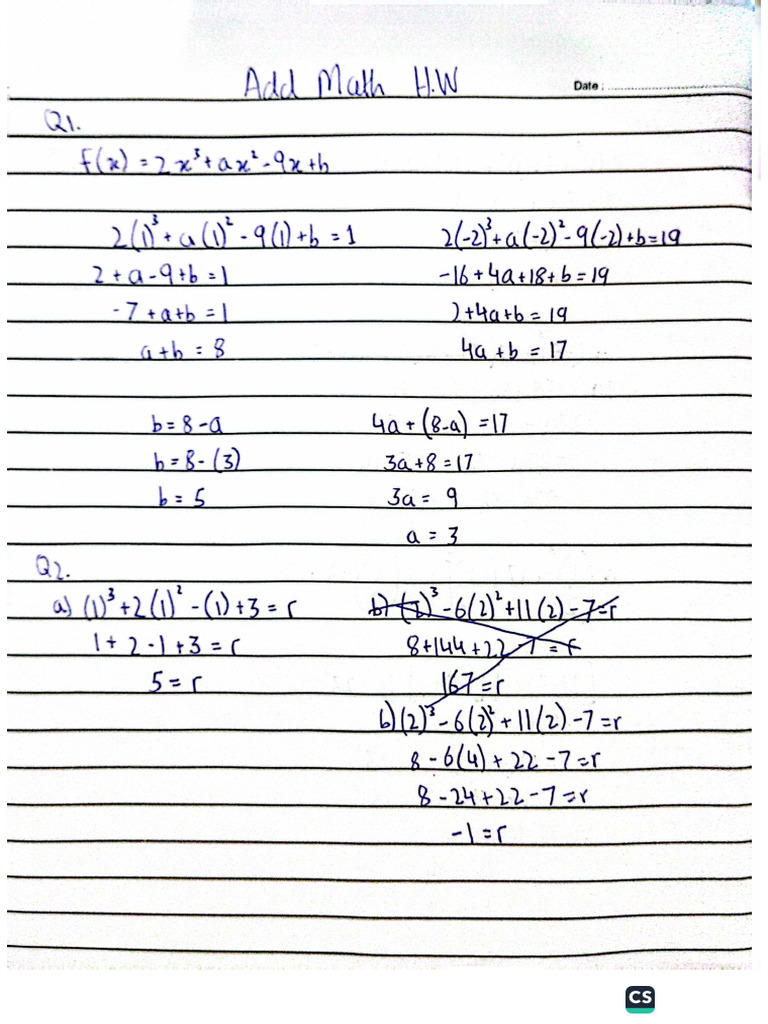 Add Math H.W
Date :
Q1.
f(x) = 2x³+ax²-9x+b
2(1)³+a(1)²-9(1)+b=1
2+a-9+b=1
-7+a+b=1
a+b=8
2(-2)³+a(-2)²-9(-2)+b=19
-16+4a+18+b=19
2+4a+b=19
4a+b=17
b=8-a
b=8-(3)
b=5
4a+(8-a)=17
3a+8=17
3a=9
a=3
Q2.
a) (1)³+2(1)²-(1)+3=r
1+2-1+3=r
5=r
b) (2)³-6(2)²+11(2)-7=r
8+144+22-7=r
167=r
b) (2)³-6(2)²+11(2)-7=r
8-6(4)+22-7=r
8-24+22-7=r
-1=r
CS